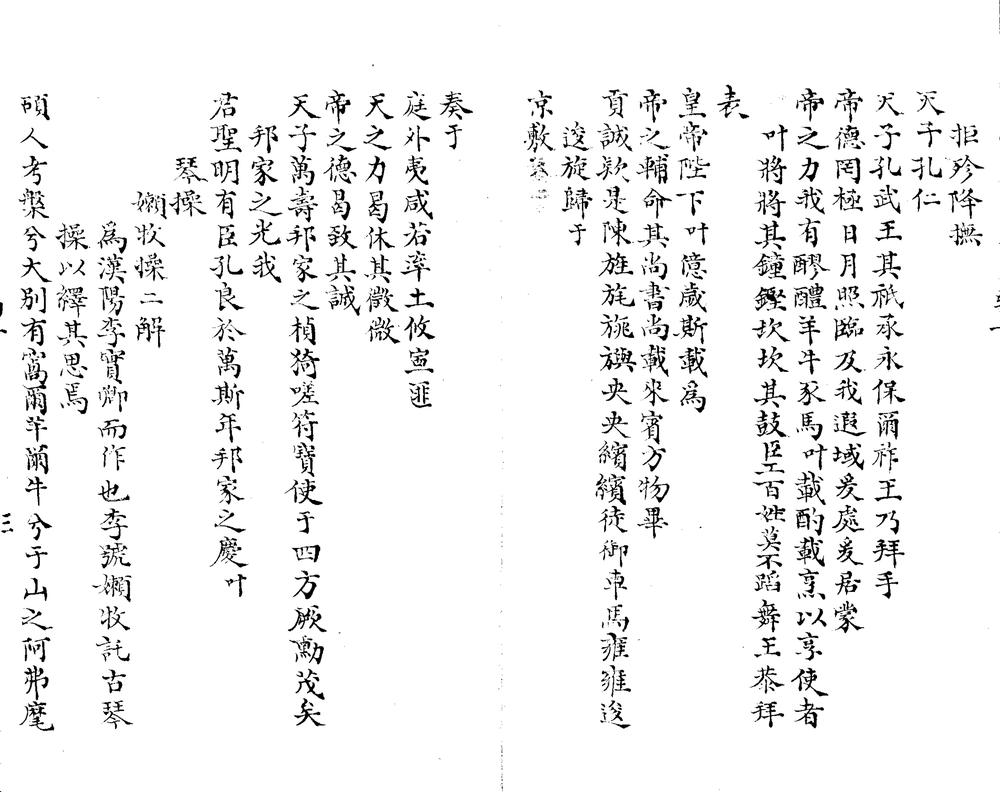 拒殄降撫
天子孔仁
天子孔武王其祇承永保爾祚王乃拜手
帝德罔極日月照臨及我遐域爰處爰居蒙
帝之力我有醪醴羊牛豕馬叶載酌載烹以享使者
叶將將其鐘鏗坎坎其鼓臣工百姓莫不蹈舞王恭拜
表
皇帝陛下叶億歲斯載爲
帝之輔命其尚書尚載來賓方物畢
貢誠欵是陳旌旄旐旟央央繽繽徒御車馬雍雍逡
逡旋歸于
京敷
奏于
庭外夷咸若率土攸宣匪
天之力曷休其微微
帝之德曷致其誠
天子萬壽邦家之楨猗嗟符寶使于四方厥勳茂矣
邦家之光我
君聖明有臣孔良於萬斯年邦家之慶叶
琴操
嬾牧操二解
爲漢陽李實卿而作也李號嬾牧託古琴
操以繹其思焉
碩人考槃兮大別有窩爾羊爾牛兮于山之阿弗麾
三